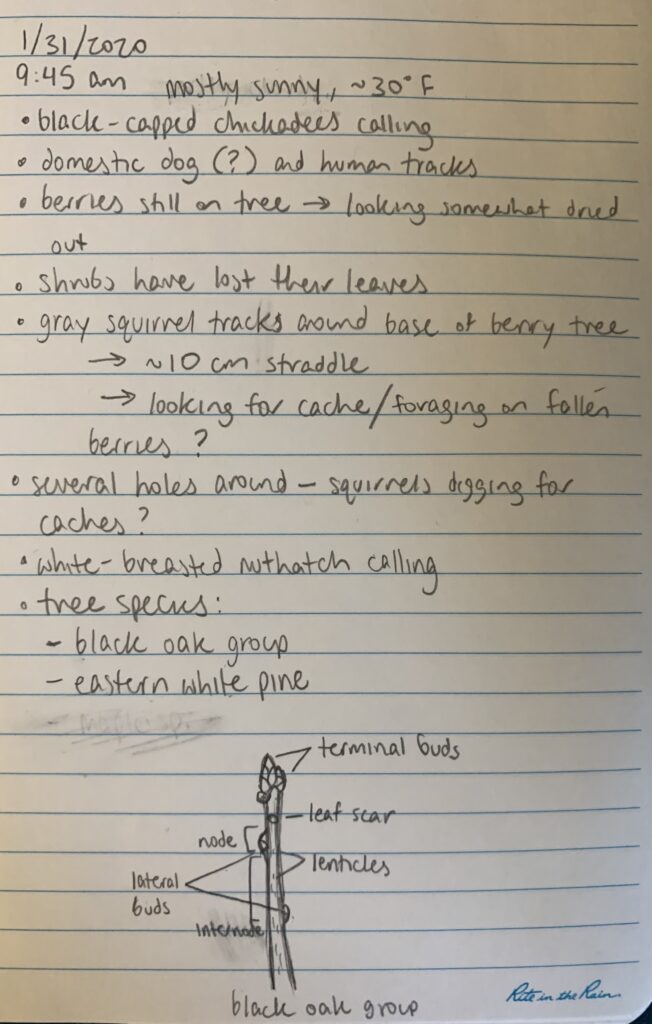 1/31/2020
9:45 am mostly sunny, ~30° F
• black-capped chickadees calling
• domestic dog (?) and human tracks
• berries still on tree → looking somewhat dried
out
• shrubs have lost their leaves
• gray squirrel tracks around base of berry tree
→ ~10 cm straddle
→ looking for cache/foraging on fallen
berries ?
• several holes around - squirrels digging for
caches ?
• white-breasted nuthatch calling
• tree species:
- black oak group
- eastern white pine
terminal buds
leaf scar
node
lenticles
lateral
buds
internode
black oak group
Rite in the Rain